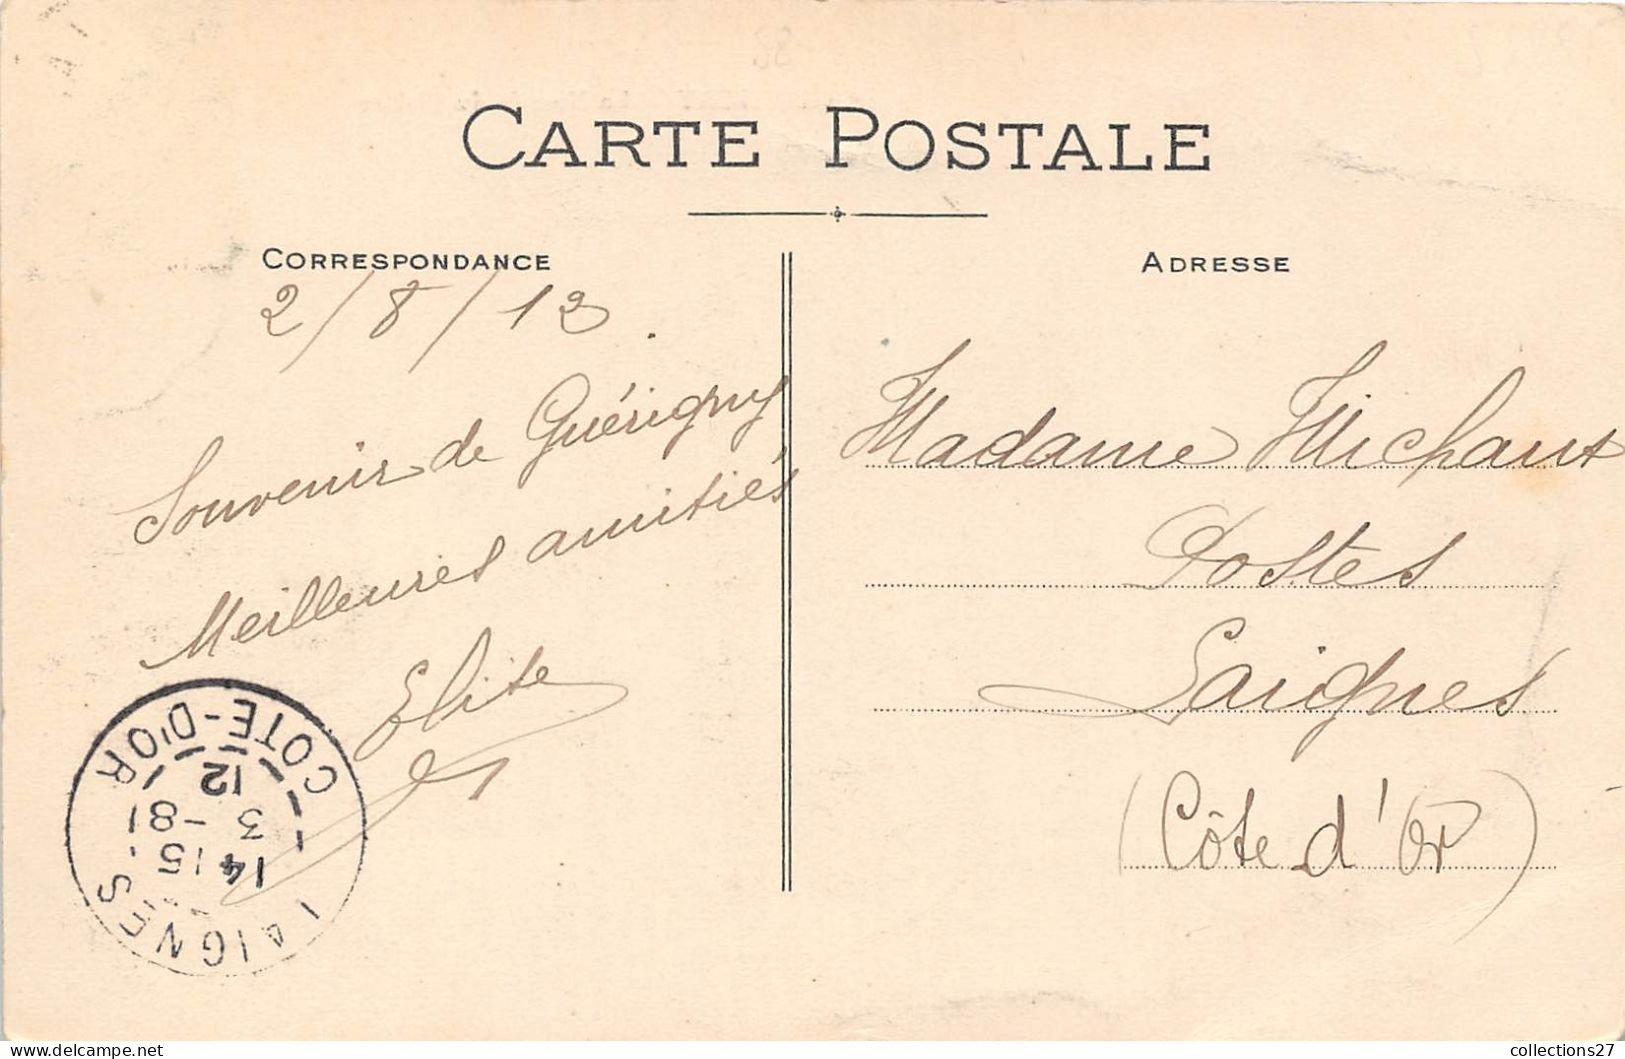 CARTE POSTALE
CORRESPONDANCE
2/8/12
Souvenir de Guérigny
Meilleures amitiés
Elise
ADRESSE
Madame Michaut
Postes
Laignes
(Côte d'Or)
LAIGNES
COTE-D'OR
14 15
3 -8
12
collections27